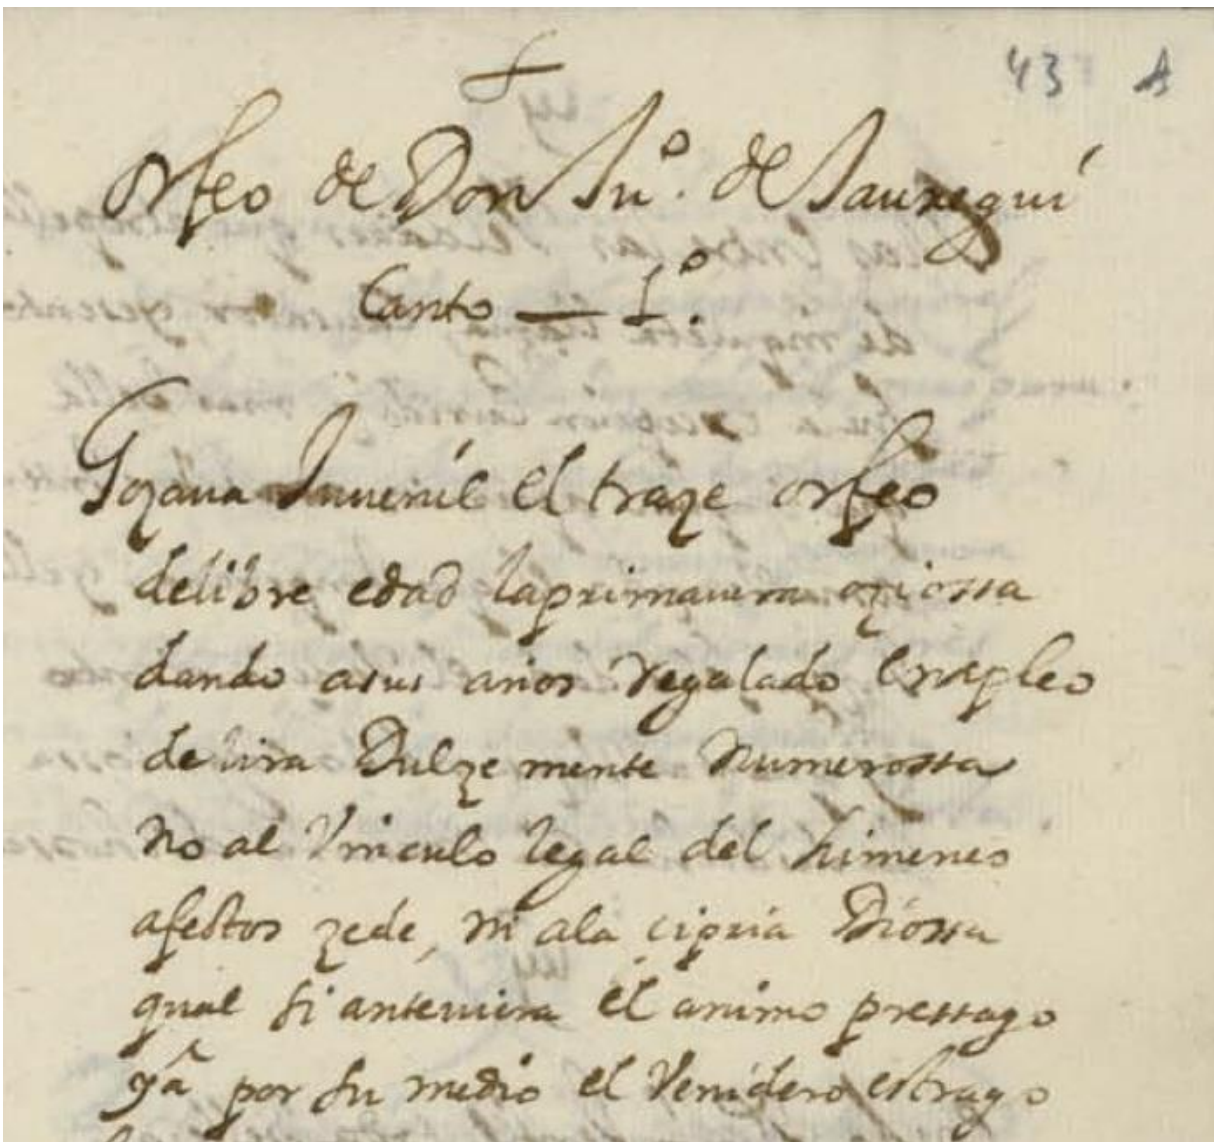 43 A
orfeo de Don Ju.º de Jauregui
Canto — 1º.
Gozaua Juuenil el traze orfeo
de libre edad la primauera oziossa
dando a sus años regalado Empleo
de lira Dulze mente Numerossa
No al Vinculo legal del himeneo
afectos zede, ni ala cipria Diossa
qual si anteuiera el animo pressago
ya por su medio el Venidero estrago